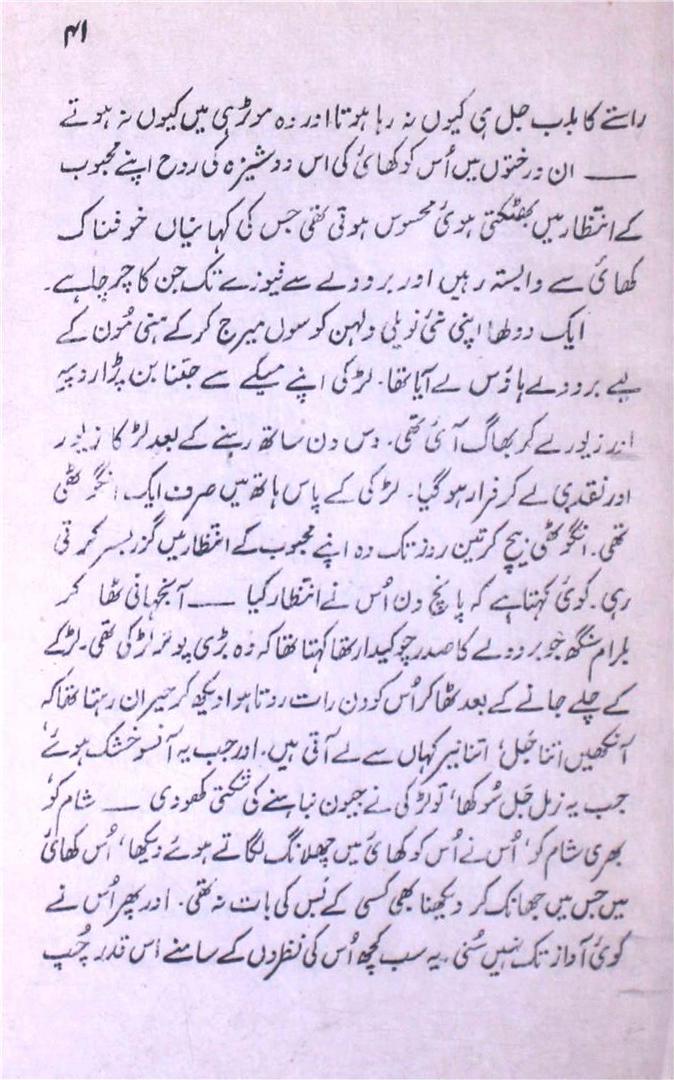 ۴۱
راستے کا بلب جل ہی کیوں نہ رہا ہوتا اور وہ موڑ ہی میں کیوں نہ ہوتے
—— ان درختوں میں اُس کو کھائی کی اس دوشیزہ کی روح اپنے محبوب
کے انتظار میں بھٹکتی ہوئی محسوس ہوتی تھی جس کی کہانیاں خوفناک
کھائی سے وابستہ رہیں اور بروولے سے نیوزے تک جن کا چرچا ہے۔
ایک دولھا اپنی نئی نویلی دلہن کو سول میرج کر کے ہنی مُون کے
لیے بروولے ہاؤس لے آیا تھا۔ لڑکی اپنے میکے سے جتنا بن پڑا روپیہ
اور زیور لے کر بھاگ آئی تھی۔ دس دن ساتھ رہنے کے بعد لڑکا زیور
اور نقدی لے کر فرار ہو گیا۔ لڑکی کے پاس ہاتھ میں صرف ایک انگوٹھی
تھی۔ انگوٹھی بیچ کر تین روز تک وہ اپنے محبوب کے انتظار میں گزر بسر کرتی
رہی۔ کوئی کہتا ہے کہ پانچ دن اُس نے انتظار کیا —— آنجہانی ٹھاکر
بلرام سنگھ جو بروولے کا صدر چوکیدار تھا کہتا تھا کہ وہ بڑی پوتر لڑکی تھی۔ لڑکے
کے چلے جانے کے بعد ٹھاکر اُس کو دن رات روتا ہوا دیکھ کر حیران رہتا تھا کہ
آنکھیں اتنا جَل، اتنا نیر کہاں سے لے آتی ہیں۔ اور جب یہ آنسو خشک ہوئے،
جب یہ نرمل جَل سُوکھا، تو لڑکی نے جیون نباہنے کی شکتی کھو دی —— شام کو،
بھری شام کو، اُس نے اُس کو کھائی میں چھلانگ لگاتے ہوئے دیکھا، اُس کھائی
میں جس میں جھانک کر دیکھنا بھی کسی کے بَس کی بات نہ تھی۔ اور پھر اُس نے
کوئی آواز تک نہیں سُنی۔ یہ سب کچھ اُس کی نظروں کے سامنے اس قدر چُپ